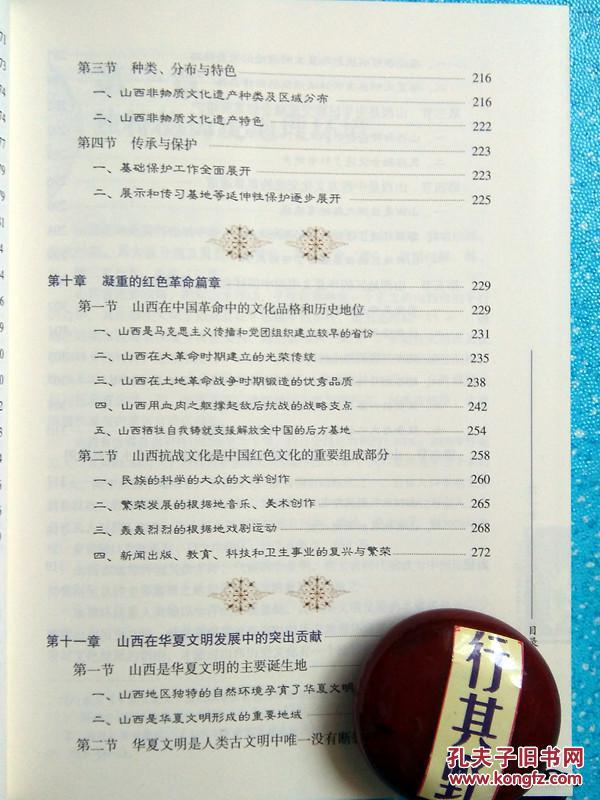 第三节 种类、分布与特色 216
一、山西非物质文化遗产种类及区域分布 216
二、山西非物质文化遗产特色 222
第四节 传承与保护 223
一、基础保护工作全面展开 223
二、展示和传习基地等延伸性保护逐步展开 225
第十章 凝重的红色革命篇章 229
第一节 山西在中国革命中的文化品格和历史地位 229
一、山西是马克思主义传播和党团组织建立较早的省份 231
二、山西在大革命时期建立的光荣传统 235
三、山西在土地革命战争时期锻造的优秀品质 238
四、山西用血肉之躯撑起敌后抗战的战略支点 242
五、山西牺牲自我铸就支援解放全中国的后方基地 254
第二节 山西抗战文化是中国红色文化的重要组成部分 258
一、民族的科学的大众的文学创作 260
二、繁荣发展的根据地音乐、美术创作 265
三、轰轰烈烈的根据地戏剧运动 268
四、新闻出版、教育、科技和卫生事业的复兴与繁荣 272
第十一章 山西在华夏文明发展中的突出贡献
第一节 山西是华夏文明的主要诞生地
一、山西地区独特的自然环境孕育了华夏文明
二、山西是华夏文明形成的重要地域
第二节 华夏文明是人类古文明中唯一没有断
目录
行其野
孔夫子旧书网
www.kongfz.com